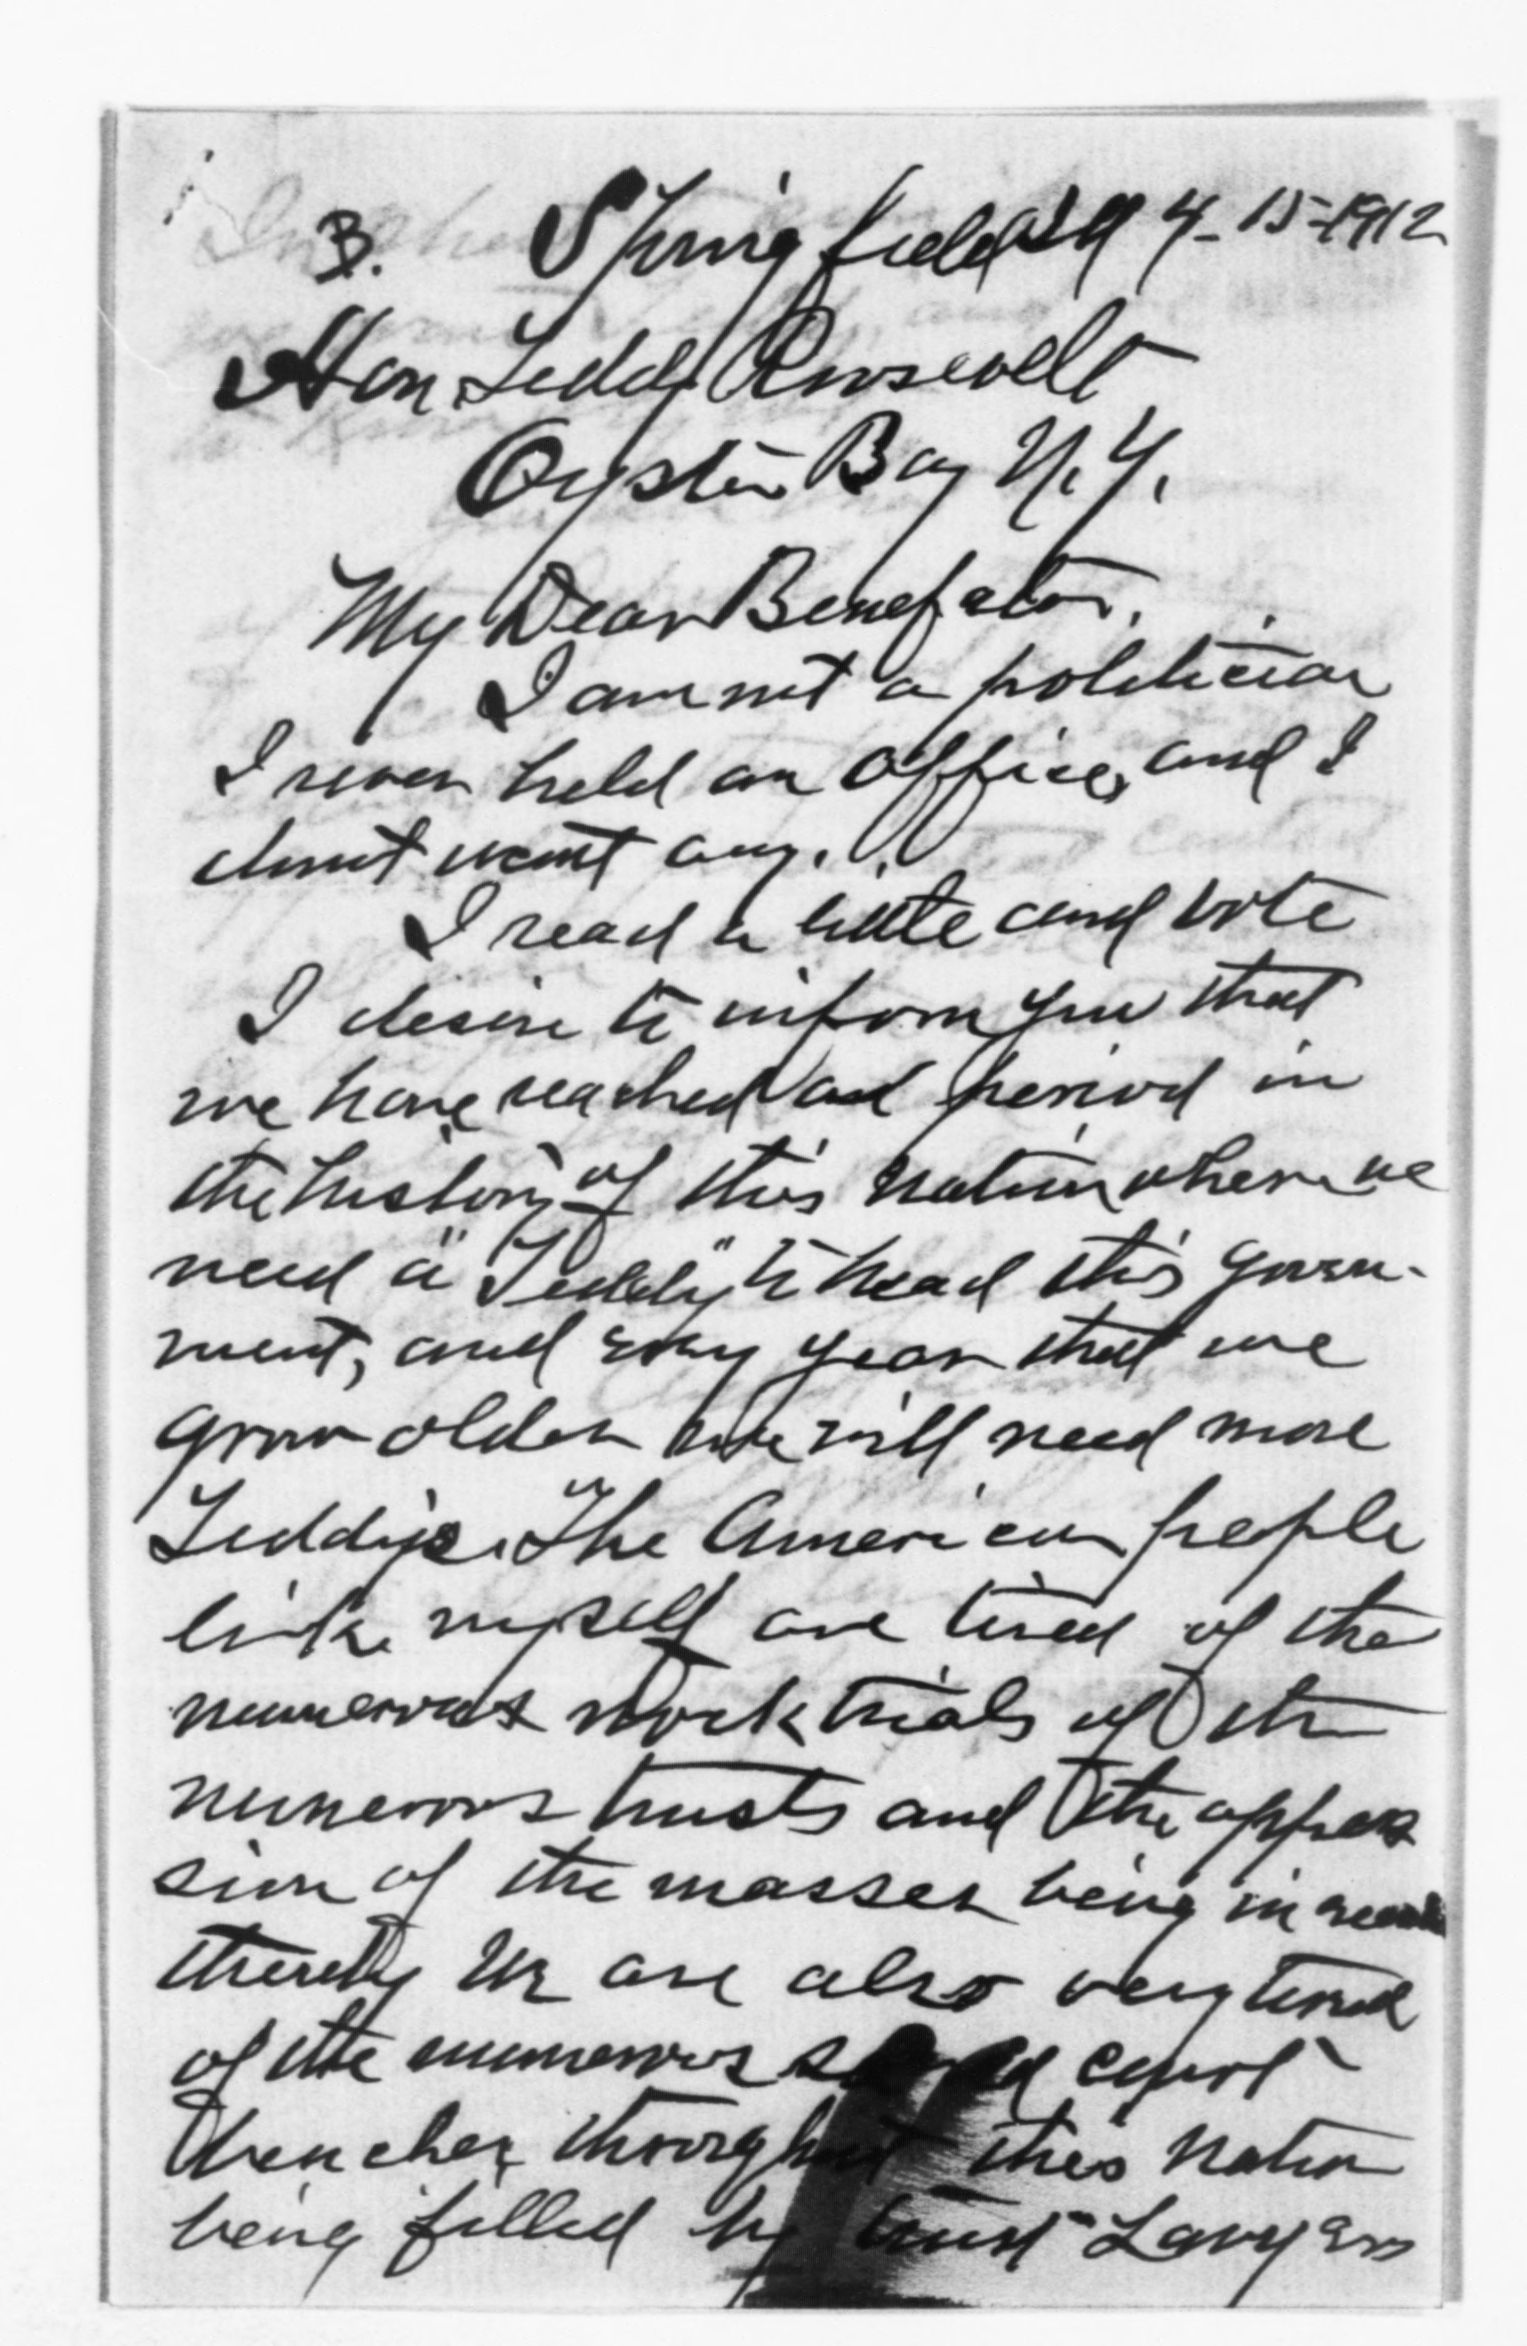 B. Springfield Ill 4-15-1912
Hon. Teddy Roosevelt
Oyster Bay N.Y.
My Dear Benefator.
I am not a politician
I never held an office, and I
dont want any.
I read a little and vote
I desire to inform you that
we have reached a period in
the history of this nation where we
need a "Teddy" to head this govern-
ment, and every year that we
grow older we will need more
Teddys. The American people
like myself are tired of the
numerous mock trials of the
numerous trusts and the oppres
sion of the masses being
thereby We are also very tired
of the numerous court
benches throughout this nation
being filled by trust Lawyers